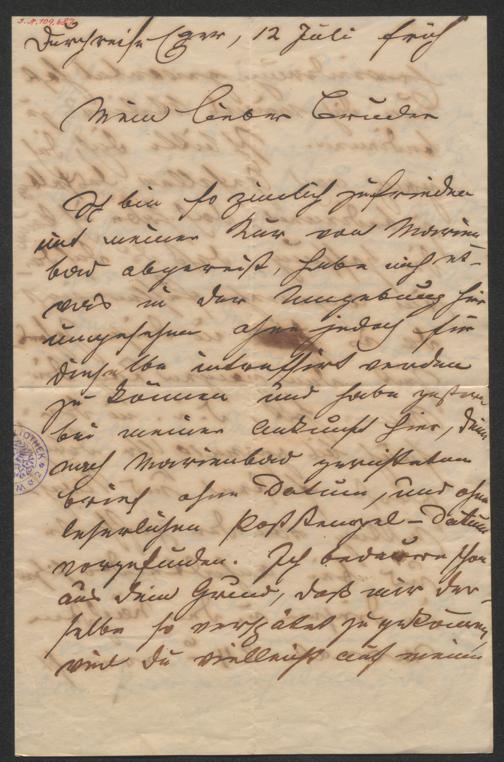 I.N. 109.682
Durchreise Eger, 12 Juli früh
Mein lieber Bruder
Ich bin so zimlich zufrieden
mit meiner Kur von Marien
bad abgereist, habe mich et-
was in der Umgebung hier
umgesehen ohne jedoch für
dieselbe intressirt werden
zu können und habe gestern
bei meiner Ankunft hier, dein
nach Marienbad gerichteten
brief ohne Datum, und ohne
leserlichen Poststempel-Datum
vorgefunden. Ich bedaure schon
aus dem Grund, daß mir der-
selbe so verspätet zugekommen,
weil du vielleicht auf meine